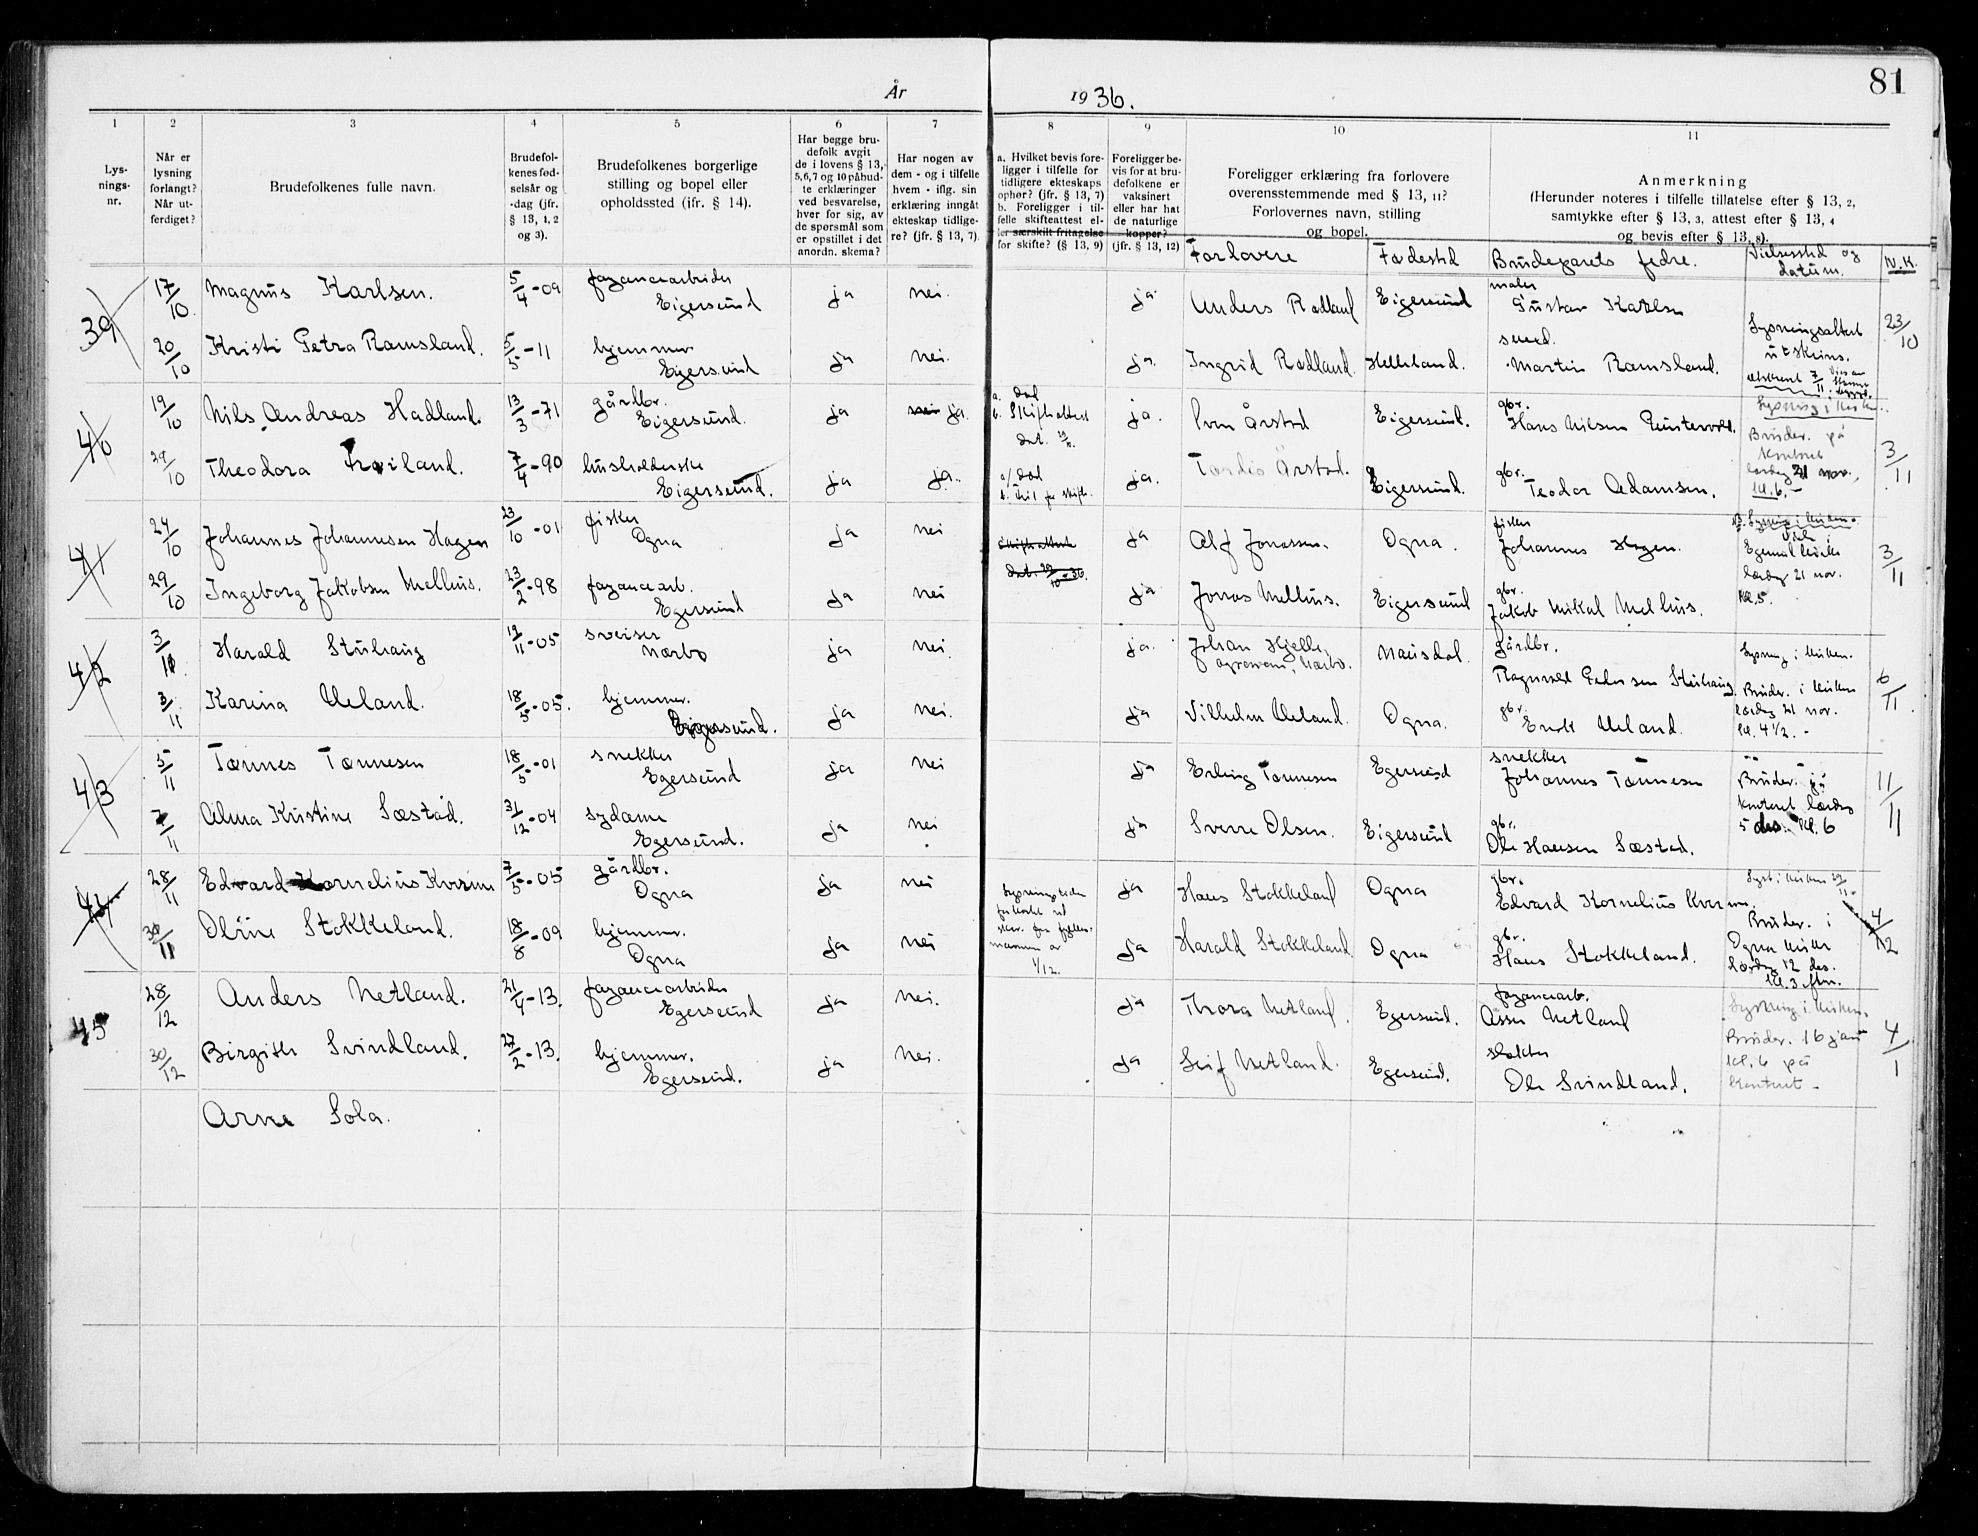 81
År 1936.
1 2 3 4 5 6 7 8 9 10 11
Lys-
nings-
nr.
Når er
lysning
forlangt?
Når ut-
ferdiget?
Brudefolkenes fulle navn.
Brudefol-
kenes fød-
selsår og
-dag (jfr.
§ 13, 1, 2
og 3).
Brudefolkenes borgerlige
stilling og bopel eller
opholdssted (jfr. § 14).
Har begge bru-
defolk avgit
de i lovens § 13,
5,6,7 og 10 påbud-
te erklæringer
ved besvarelse,
hver for sig, av
de spørsmål som
er opstillet i det
anordn. skema?
Har nogen av
dem - og i tilfelle
hvem - iflg. sin
erklæring inngåt
ekteskap tidlige-
re? (jfr. § 13, 7).
a. Hvilket bevis fore-
ligger i tilfelle for
tidligere ekteskaps
ophør? (jfr. § 13, 7)
b. Foreligger i til-
felle skifteattest el-
ler særskilt fritagelse
for skifte? (§ 13, 9)
Foreligger be-
vis for at bru-
defolkene er
vaksinert
eller har hat
de naturlige
kopper?
(jfr. § 13, 12)
Foreligger erklæring fra forlovere
overensstemmende med § 13, 11?
Forlovernes navn, stilling
og bopel.
Anmerkning
(Herunder noteres i tilfelle tillatelse efter § 13, 2,
samtykke efter § 13, 3, attest efter § 13, 4
og bevis efter § 13, 8).
Forlovere Fødestd Brudeparets fedre. Vielsesstd og
datum. N.K.
39 17/10 Magnus Karlsen. 5/4-09 fayancearbeider
Eigersund ja nei. ja Anders Rødland Eigersund maler
Gustav Karlsen 23/10
20/10 Kristi Petra Ramsland. 5/5-11 hjemmev.
Eigersund ja nei. ja. Ingrid Rødland Helleland. smed.
Martin Ramsland. Lysningsattest
utskrevs.
40 19/10 Nils Andreas Hadland. 13/3-71 gårdbr.
Eigersund. ja nei ja. a. død
b. Skifteattest
ja. Sven Årstad Eigersund. gbr.
Hans Nilsen Lysning i kirken.
29/10 Theodora Frøiland. 7/4-90 husholderske
Eigersund. ja ja. a/ død
ja. Tordis Årstad. Eigersund. gbr.
Teodor Adamsen. Bruder. på
kontoret
lørdag 21 nov.,
kl. 6.- 3/11
41 24/10 Johannes Johannesen Hagen 23/10-01 fisker
Ogna ja nei skifteattest
dat. 29/10-36. ja Alf Jonassen. Ogna. fisker
Johannes Hagen. 3/11
29/10 Ingeborg Jakobsen Mellus. 23/2-98 fayancearb.
Egersund ja nei ja Jonas Mellus. Eigersund gbr.
Jakob Mikal Mellus. Egersund kirke
lørdag 21 nov.
kl. 5.
42 3/11 Harald Stuhaug 12/11-05 sveiser
Nærbø ja nei. ja. Johan Hjelle,
agronom, Nærbø. Mausdal. gårdbr.
Ragnvald Pedersen Stuhaug Lysning i kirken. 6/11
3/11 Karina Ueland. 18/5-05. hjemmev.
Eigersund. ja nei. ja Vilhelm Ueland. Ogna. gbr.
Enok Ueland. Bruder. i kirken
lørdag 21 nov.
kl. 4 1/2. -
43 5/11 Tønnes Tønnesen 18/5-01 snekker
Egersund ja nei ja Erling Tønnesen Egersund snekker
Johannes Tønnesen 11/11
7/11 Alma Kristine Sæstad. 31/12-04 sydame
Egersund. ja nei ja Sverre Olsen. Eigersund gbr.
Ole Hansen Sæstad. Bruder. på
kontoret lørdag
5 des. kl. 6
44 28/11 Edvard Kornelius Kverme 7/5-05 gårdbr.
Ogna ja nei Lysningstiden
ja Hans Stokkeland Ogna gbr.
Edvard Kornelius Kverme. Lyst i kirken 29/11. 4/12
30/11 Oline Stokkeland. 18/8-09 hjemmev.
Ogna ja nei 1/12. ja Harald Stokkeland Ogna gbr.
Hans Stokkeland. Bruder. i
Ogna kirke
Lørdag 12 des.
kl. 3 eftm.
45 28/12 Anders Netland. 21/4-13. fayancearbeider
Egersund ja nei. ja Thora Netland. Egersund. fayancearb.
Asser Netland Lysning i kirken. 4/1
30/12 Birgith Svindland. 27/2-13. hjemmev.
Egersund. ja nei. ja Leif Netland. Egersund. slakter
Ole Svindland. Bruder. 16 jan
kl. 6 på
kontoret -
Arne Sola.